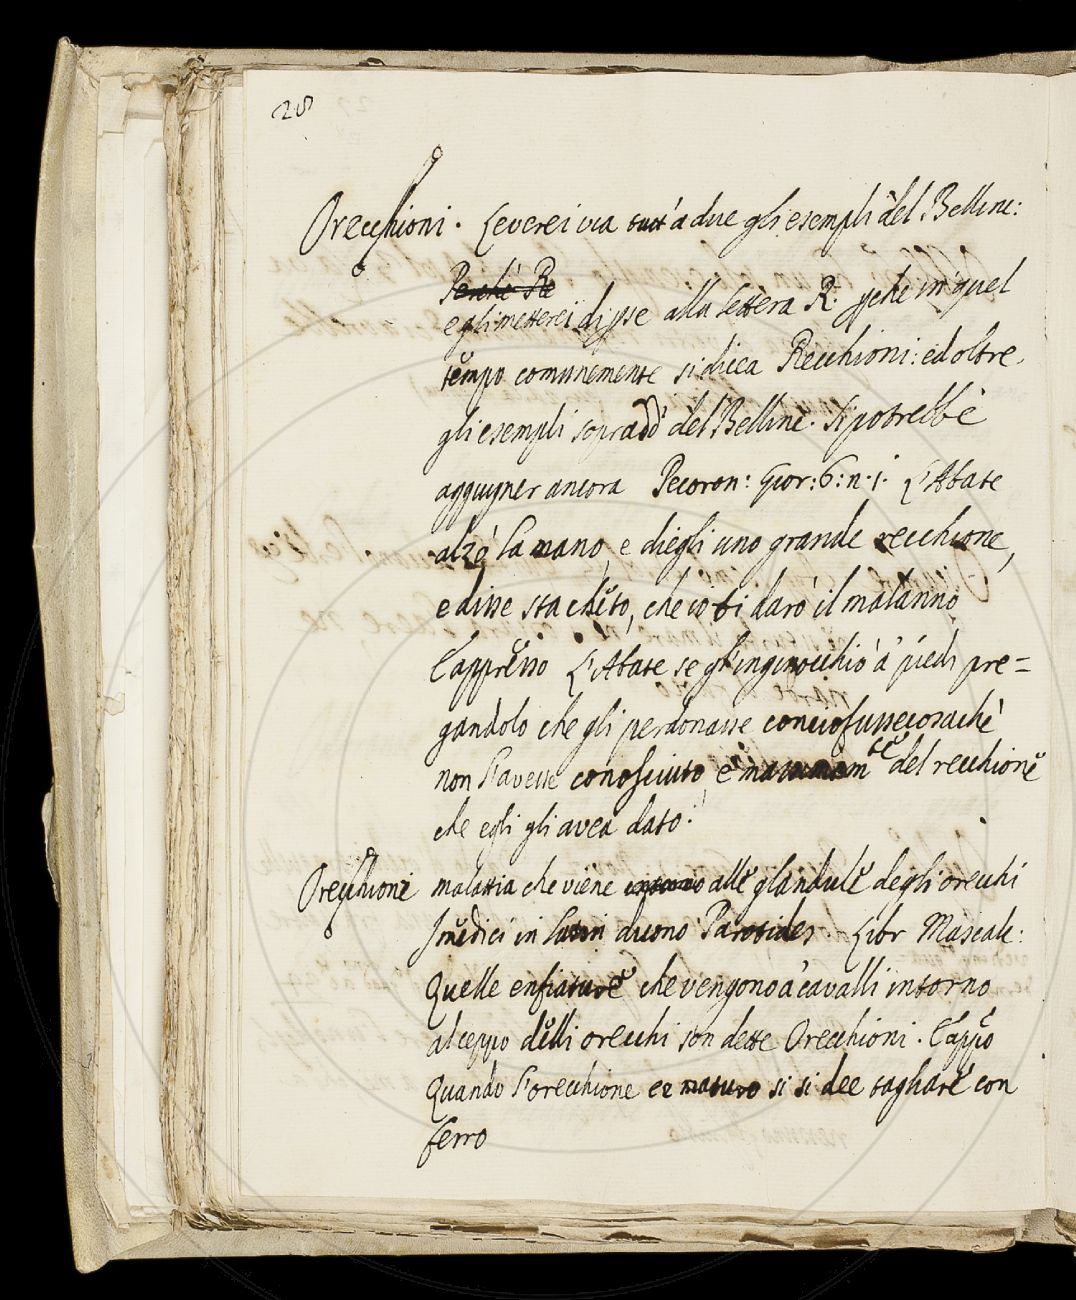 28
Orecchioni. Leverei via tutt'a due gli esempli del Bellinc:
Perché Re
e gli metterei di pse alla lettera R. pche in quel
tempo comunemente si dicea Recchioni: ed oltre
gli esempli sopradd' del Bellinc. si potrebbe
aggiugner ancora Pecoron: Gior: 6: n. 1. L'Abate
alzò la mano, e diegli uno grande recchione,
e disse sta cheto, che io ti darò il malanno
E appresso L'Abate se gl'inginocchiò a' piedi pre=
gandolo che gli perdonasse conciofussecosaché
non l'avesse conosciuto, e massimamte del recchione
che egli gli avea dato.
Orecchioni malattia che viene intorno alle glandule degli orecchi
I medici in latin dicono Parotides. Libr Mascalc:
Quelle enfiature che vengono a' cavalli intorno
al ceppo delli orecchi son dette Orecchioni. E appo
Quando l'orecchione ee maturo si si dee tagliare con
ferro